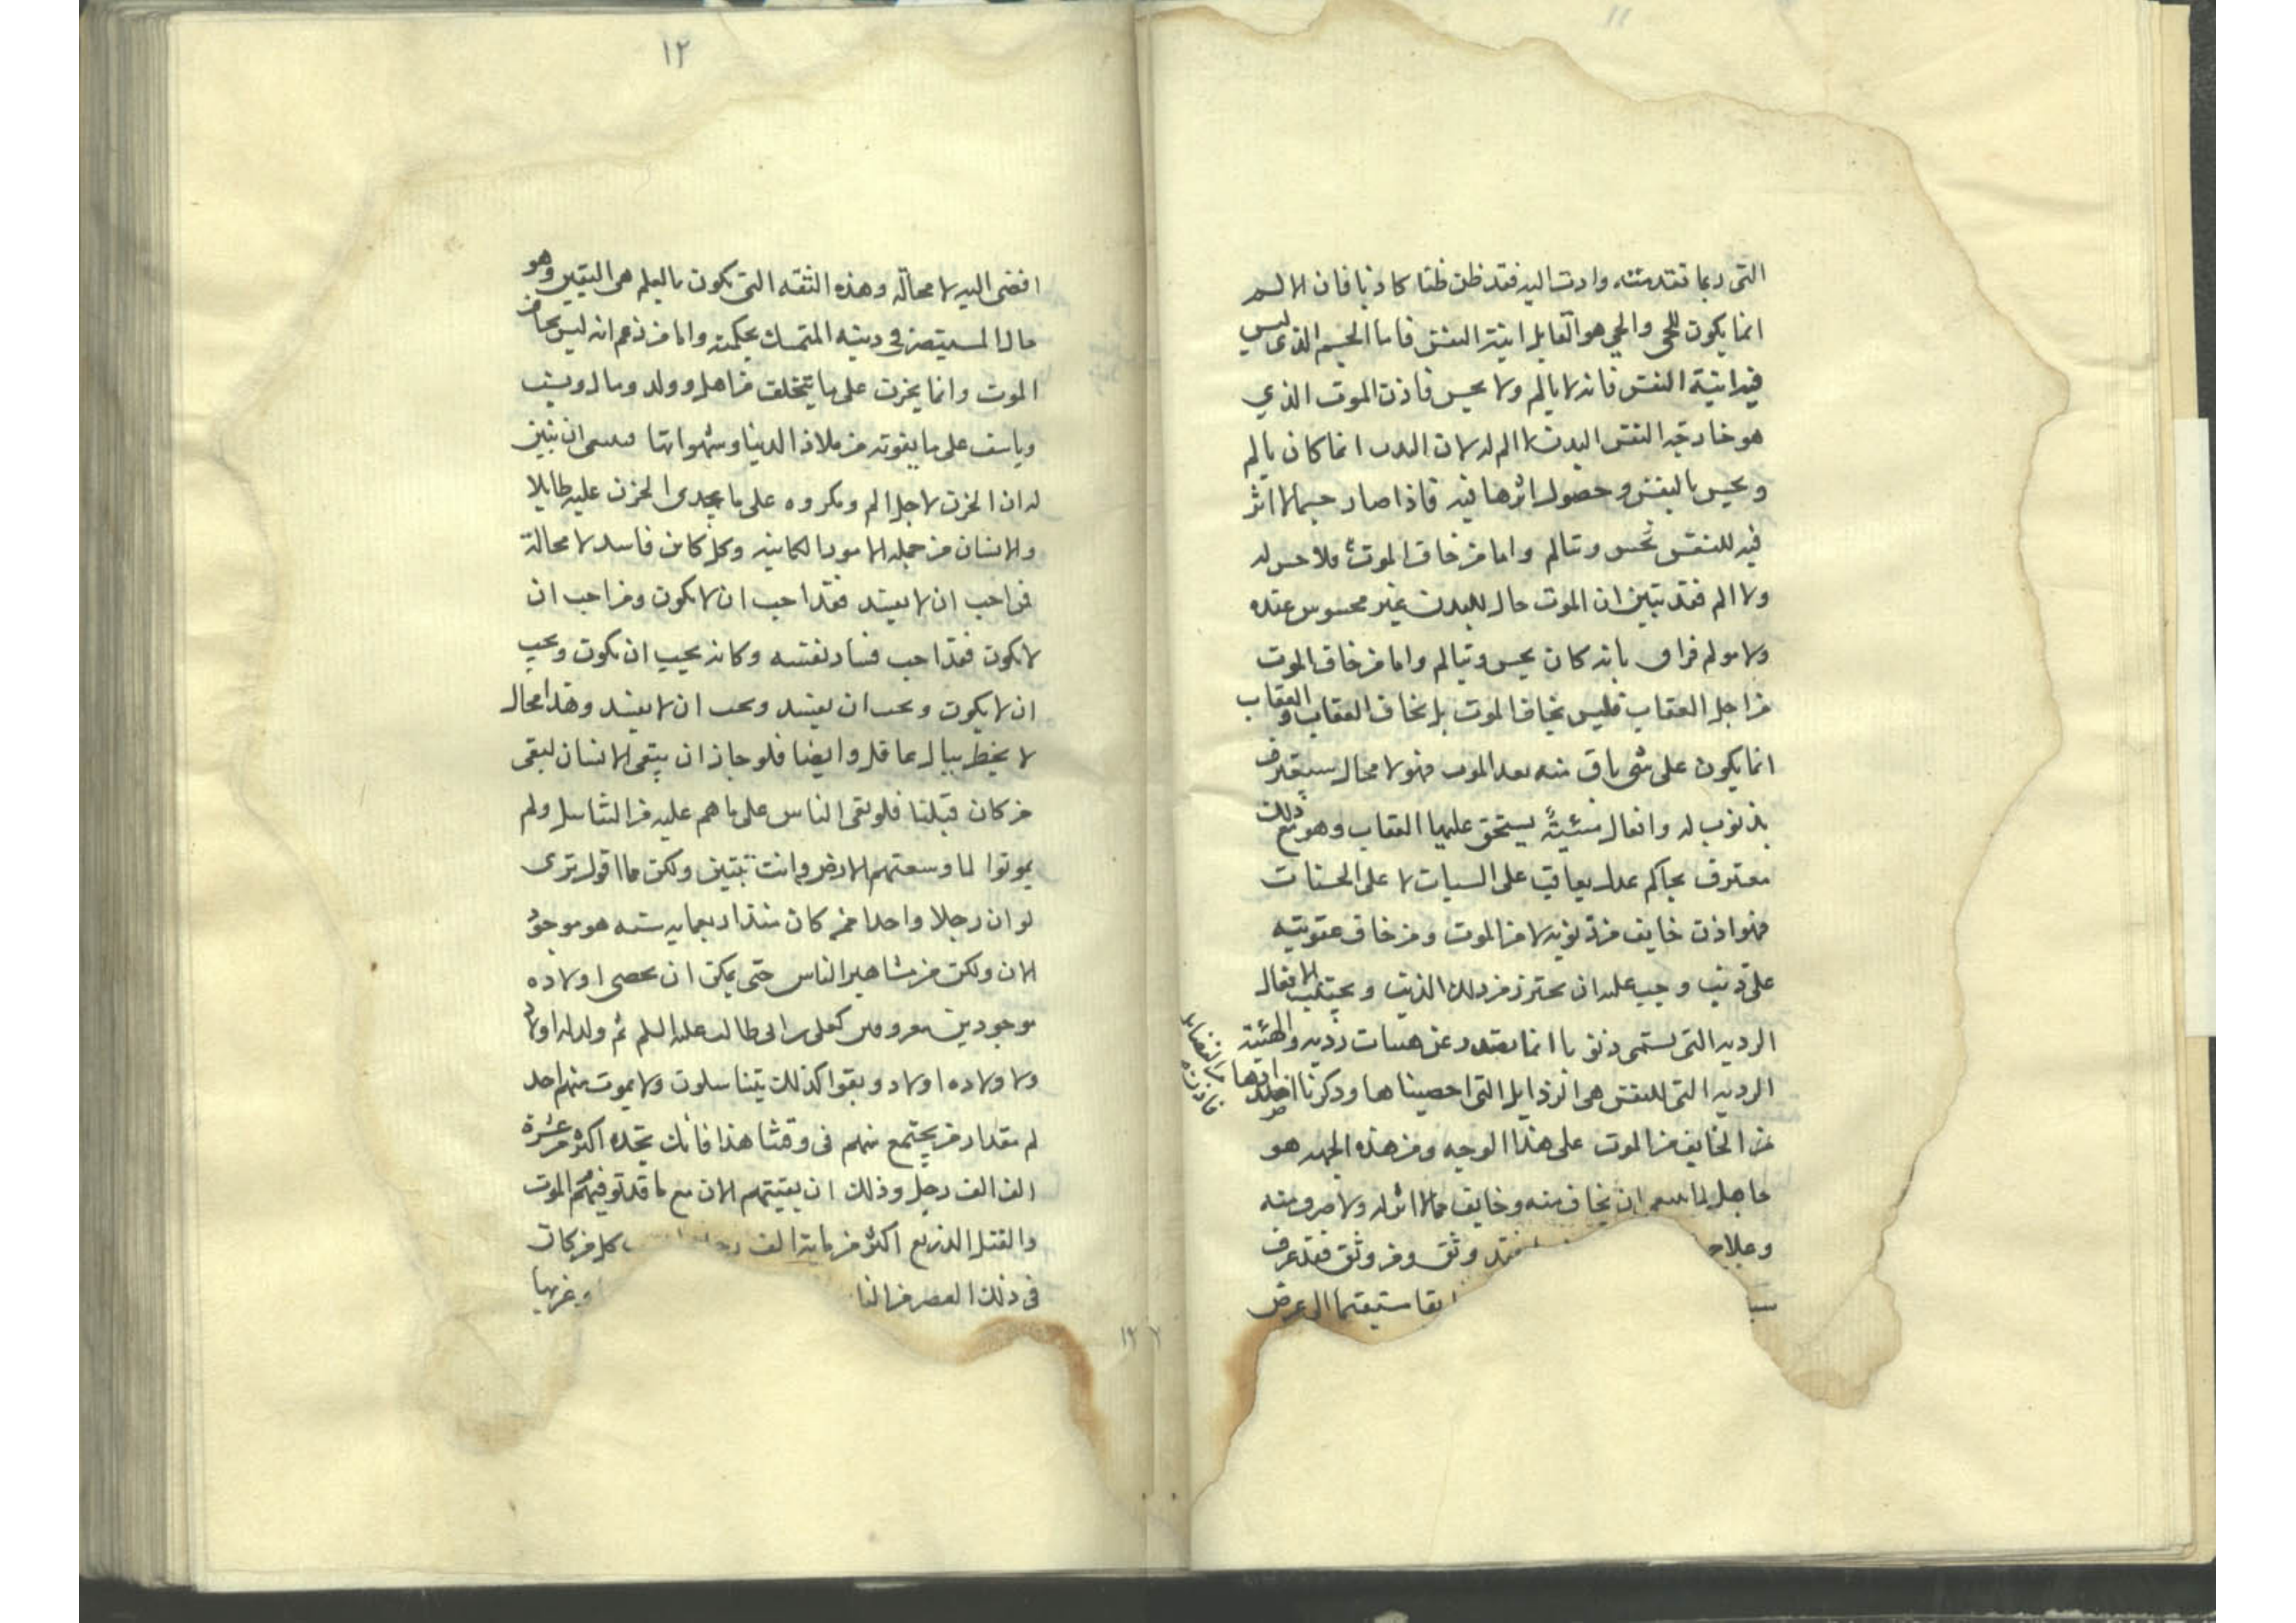 التى ربما تتقدمته وادت اليه فقد ظن ظنا كاذبا فان الالم
انما يكون للحى والحي هو القابل انية النفس فاما الجسم الذى ليس
فيه انية النفس فانه لا يالم ولا يحس فاذن الموت الذي
هو مفارقه النفس البدن لا الم له لان البدن انما كان يالم
و يحس بالنفس و حصول اثرها فيه فاذا صار جسما لا اثر
فيه للنفس تحس وتتالم واما من خاف الموت فلا حس له
ولا الم فقد تبين ان الموت حال للبدن غير محسوس عنده
ولا مولم فراق ما به كان يحس ويتالم واما من خاف الموت
من اجل العقاب فليس يخاف الموت بل يخاف العقاب و العقاب
انما يكون على شى باق منه بعد الموت فهو لا محال سيعترف
بذنوب له وافعال سيئة يستحق عليها العقاب وهو مع ذلك
معترف بحاكم عدل يعاقب على السيات لا على الحسنات
فهو اذن خايف من ذنوبه لا من الموت ومن خاف عقوبته
على ذنب وجب عليه ان يحترز من ذلك الذنب و يجتنب الافعال
الرديه التى يسمى ذنوبا انما يصدر عن هيات رديه والهيئة
الرديه التى للنفس هى الرذايل التى احصيناها وذكرنا اضدادها من الفضايل
فاذن من الخايف من الموت على هذا الوجه ومن هذه الجهه هو
جاهل بما ينبغى ان يخاف منه وخايف مما لا اثر له ولا خوف منه
وعلاج فقد وثق ومن وثق فقد عرف
سبـ مستقيما الى غرض
١٢
افضى اليه لا محالة وهذه الثقه التى تكون بالعلم هى اليقين وهو
حال المستبصر فى دينه المتمسك بحكمته واما من زعم انه ليس يخاف
الموت وانما يحزن على ما يتخلف من اهل وولد ومال ونسب
وياسف على ما يفوته من ملاذ الدنيا وشهواتها فينبغى ان نبين
له ان الحزن لاجل الم ومكروه على ما لا يجدى الحزن عليه طايلا
والانسان من جمله الامور الكاينه وكل كاين فاسد لا محالة
فمن احب ان لا يفسد فقد احب ان لا يكون ومن احب ان
لا يكون فقد احب فساد نفسه وكانه يحب ان يكون ويحب
ان لا يكون ويحب ان يفسد ويحب ان لا يفسد وهذا محال
لا يخطر ببال عاقل وايضا فلو جاز ان يبقى الانسان لبقى
من كان قبلنا فلو بقى الناس على ما هم عليه من التناسل ولم
يموتوا لما وسعتهم الارض وانت تتبين ولكن مما اقول ترى
لو ان رجلا واحدا ممن كان منذ اربعمايه سنه هو موجود
الان ولكن من مشاهير الناس حتى يمكن ان يحصى اولاده
موجودين معروفين كعلى بن ابى طالب عليه السلم ثم ولد له اولاد
ولاولاده اولاد و بقوا كذلك يتناسلون ولا يموت منهم احد
لم مقدار من يجتمع منهم فى وقتنا هذا فانك تجده اكثر من عشرة
الف الف رجل وذلك ان بقيتهم الان مع ما قد توفيهم الموت
والقتل الذريع اكثر من ماية الف رجل كل من كان
فى ذلك العصر من النا و غربها
١٢٢